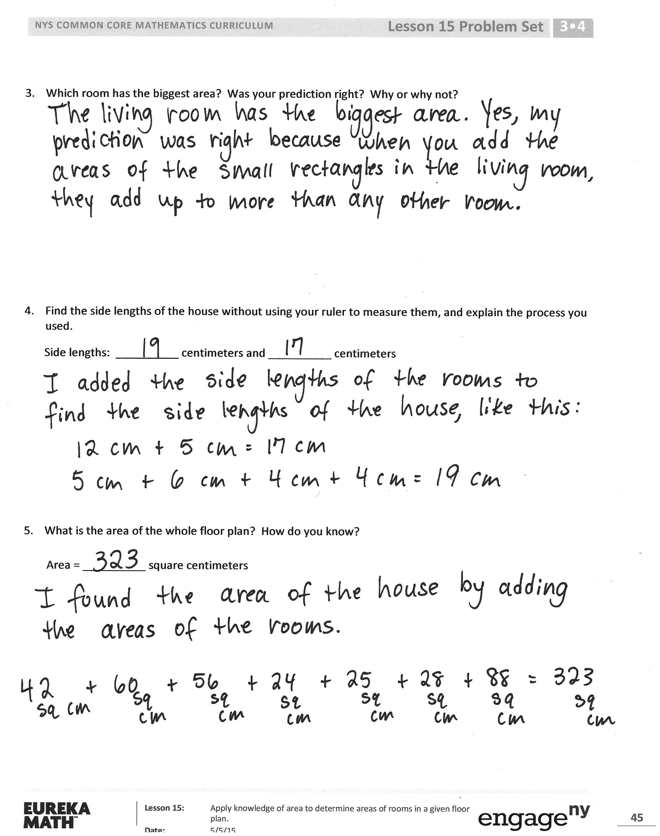 NYS COMMON CORE MATHEMATICS CURRICULUM
Lesson 15 Problem Set 3•4
3. Which room has the biggest area? Was your prediction right? Why or why not?
The living room has the biggest area. Yes, my
prediction was right because when you add the
areas of the small rectangles in the living room,
they add up to more than any other room.
4. Find the side lengths of the house without using your ruler to measure them, and explain the process you
used.
Side lengths: 19 centimeters and 17 centimeters
I added the side lengths of the rooms to
find the side lengths of the house, like this:
12 cm + 5 cm = 17 cm
5 cm + 6 cm + 4 cm + 4 cm = 19 cm
5. What is the area of the whole floor plan? How do you know?
Area = 323 square centimeters
I found the area of the house by adding
the areas of the rooms.
42 + 60 + 56 + 24 + 25 + 28 + 88 = 323
sq cm sq sq sq sq sq sq sq
cm cm cm cm cm cm cm
EUREKA
MATH™
Lesson 15: Apply knowledge of area to determine areas of rooms in a given floor
plan.
Date: 5/5/15
engageny
45